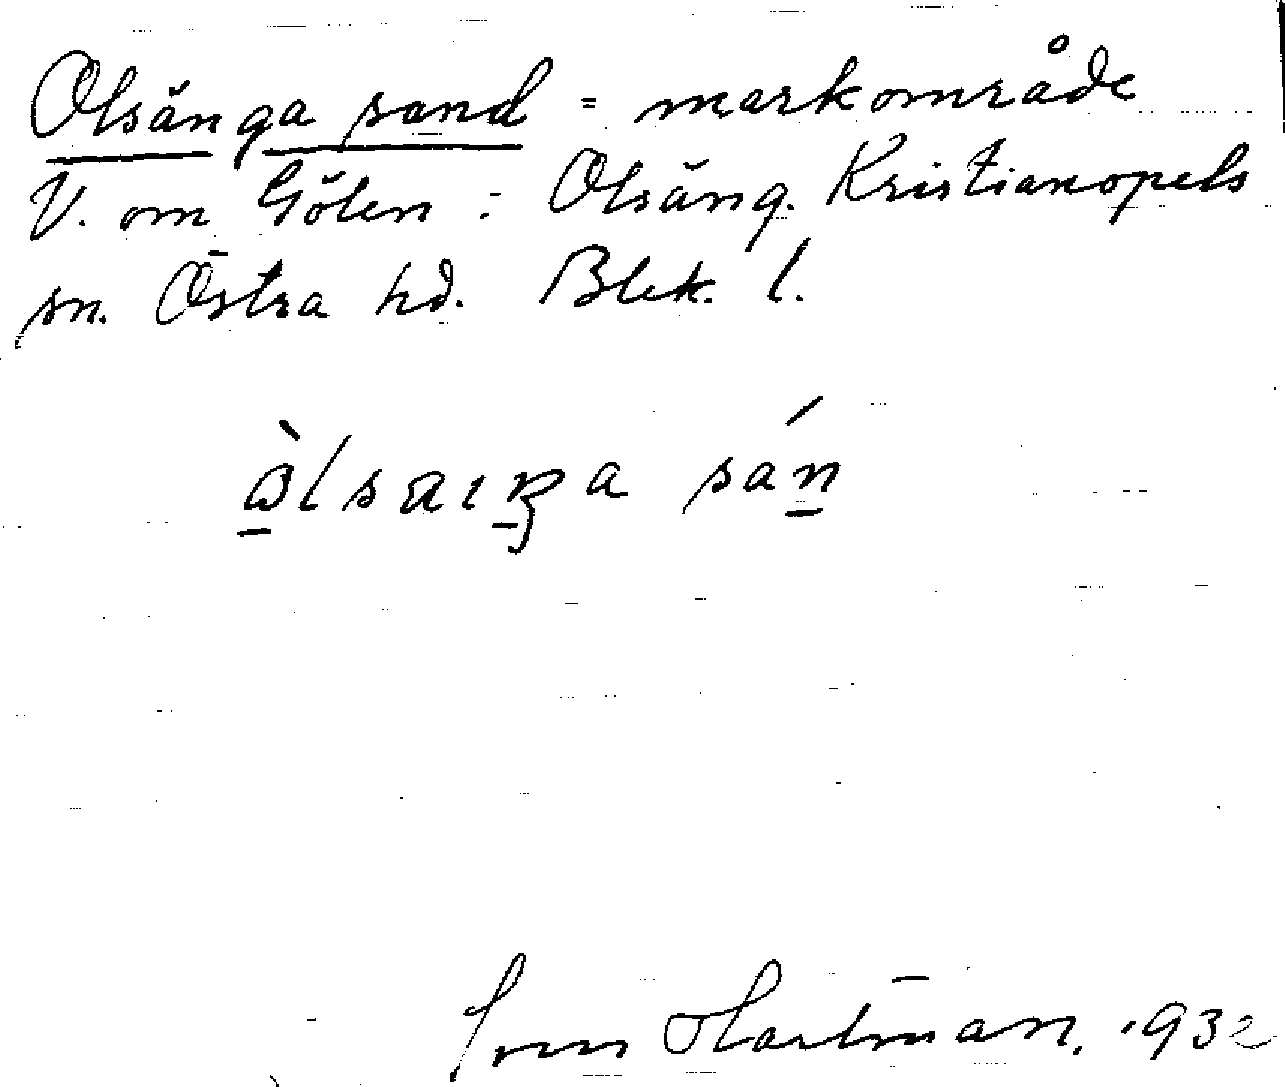 Olsänga sand = markområde
V. om Gölen : Olsäng. Kristianopels
sn. Östra hd. Blek. l.
sán
Hartman. 1932